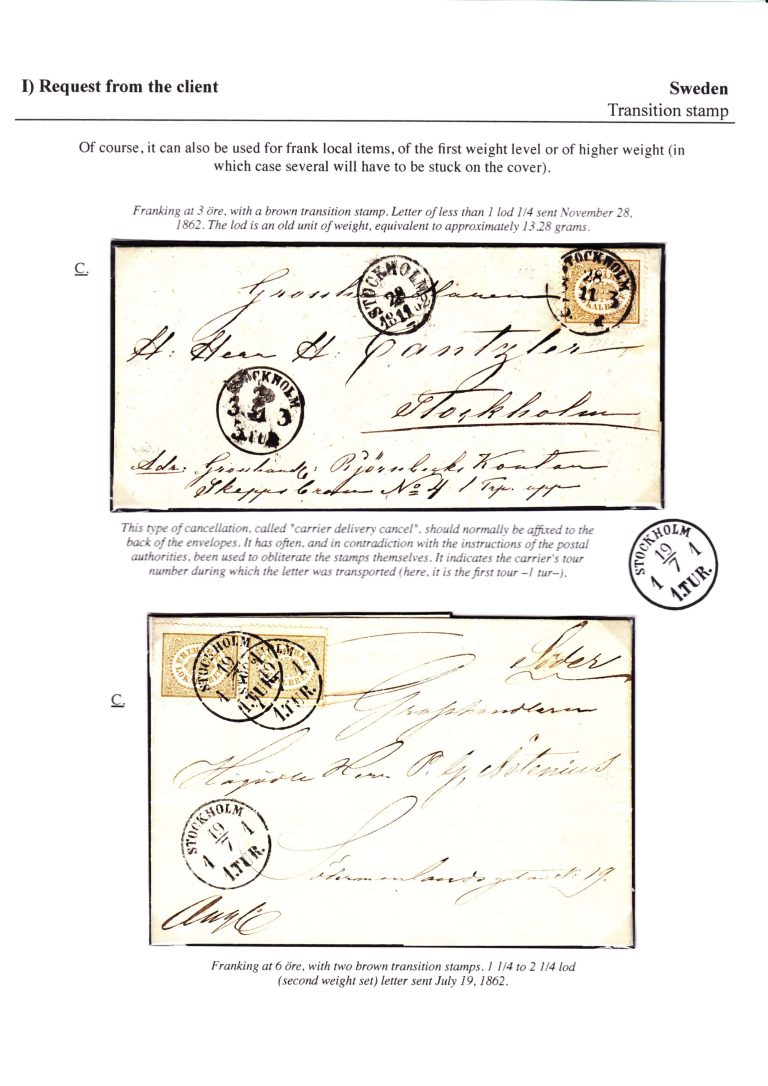 I) Request from the client
Sweden
Transition stamp
Of course, it can also be used for frank local items, of the first weight level or of higher weight (in
which case several will have to be stuck on the cover).
Franking at 3 öre, with a brown transition stamp. Letter of less than 1 lod 1/4 sent November 28,
1862. The lod is an old unit of weight, equivalent to approximately 13.28 grams.
C.
STOCKHOLM
28
11
1862
STOCKHOLM
28
11
3
H: Herr H. Cantzler
Stockholm
STOCKHOLM
3 3
3.TUR
Adr:
No 4 1 Trp. upp
This type of cancellation, called "carrier delivery cancel", should normally be affixed to the
back of the envelopes. It has often, and in contradiction with the instructions of the postal
authorities, been used to obliterate the stamps themselves. It indicates the carrier's tour
number during which the letter was transported (here, it is the first tour –1 tur–).
STOCKHOLM
19
7
1 1
1.TUR.
C.
STOCKHOLM
19
1
1.TUR.
1
1.TUR.
Söder
Herr P. G.
STOCKHOLM
19
7
1 1
1.TUR.
Södermanlandsgatan No 19.
Franking at 6 öre, with two brown transition stamps. 1 1/4 to 2 1/4 lod
(second weight set) letter sent July 19, 1862.